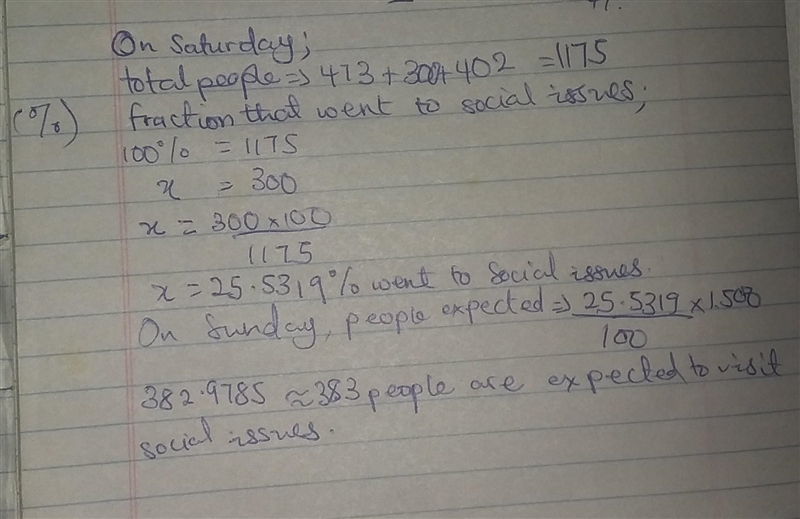 On Saturday;
total people => 473 + 300 + 402 = 1175
(%) fraction that went to social issues;
100% = 1175
x = 300
x = 300 × 100
1175
x = 25.5319% went to Social issues.
On Sunday, people expected => 25.5319 × 1.500
100
382.9785 ≈ 383 people are expected to visit
social issues.